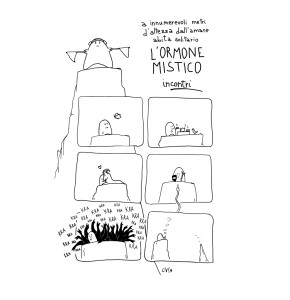 a innumerevoli metri
d'altezza dall'amaro
abita solitario
L'ORMONE
MISTICO
incontri
KRA KRA KRA
KRA KRA KRA KRA KRA
KRA KRA KRA KRA
KRA KRA
KRA